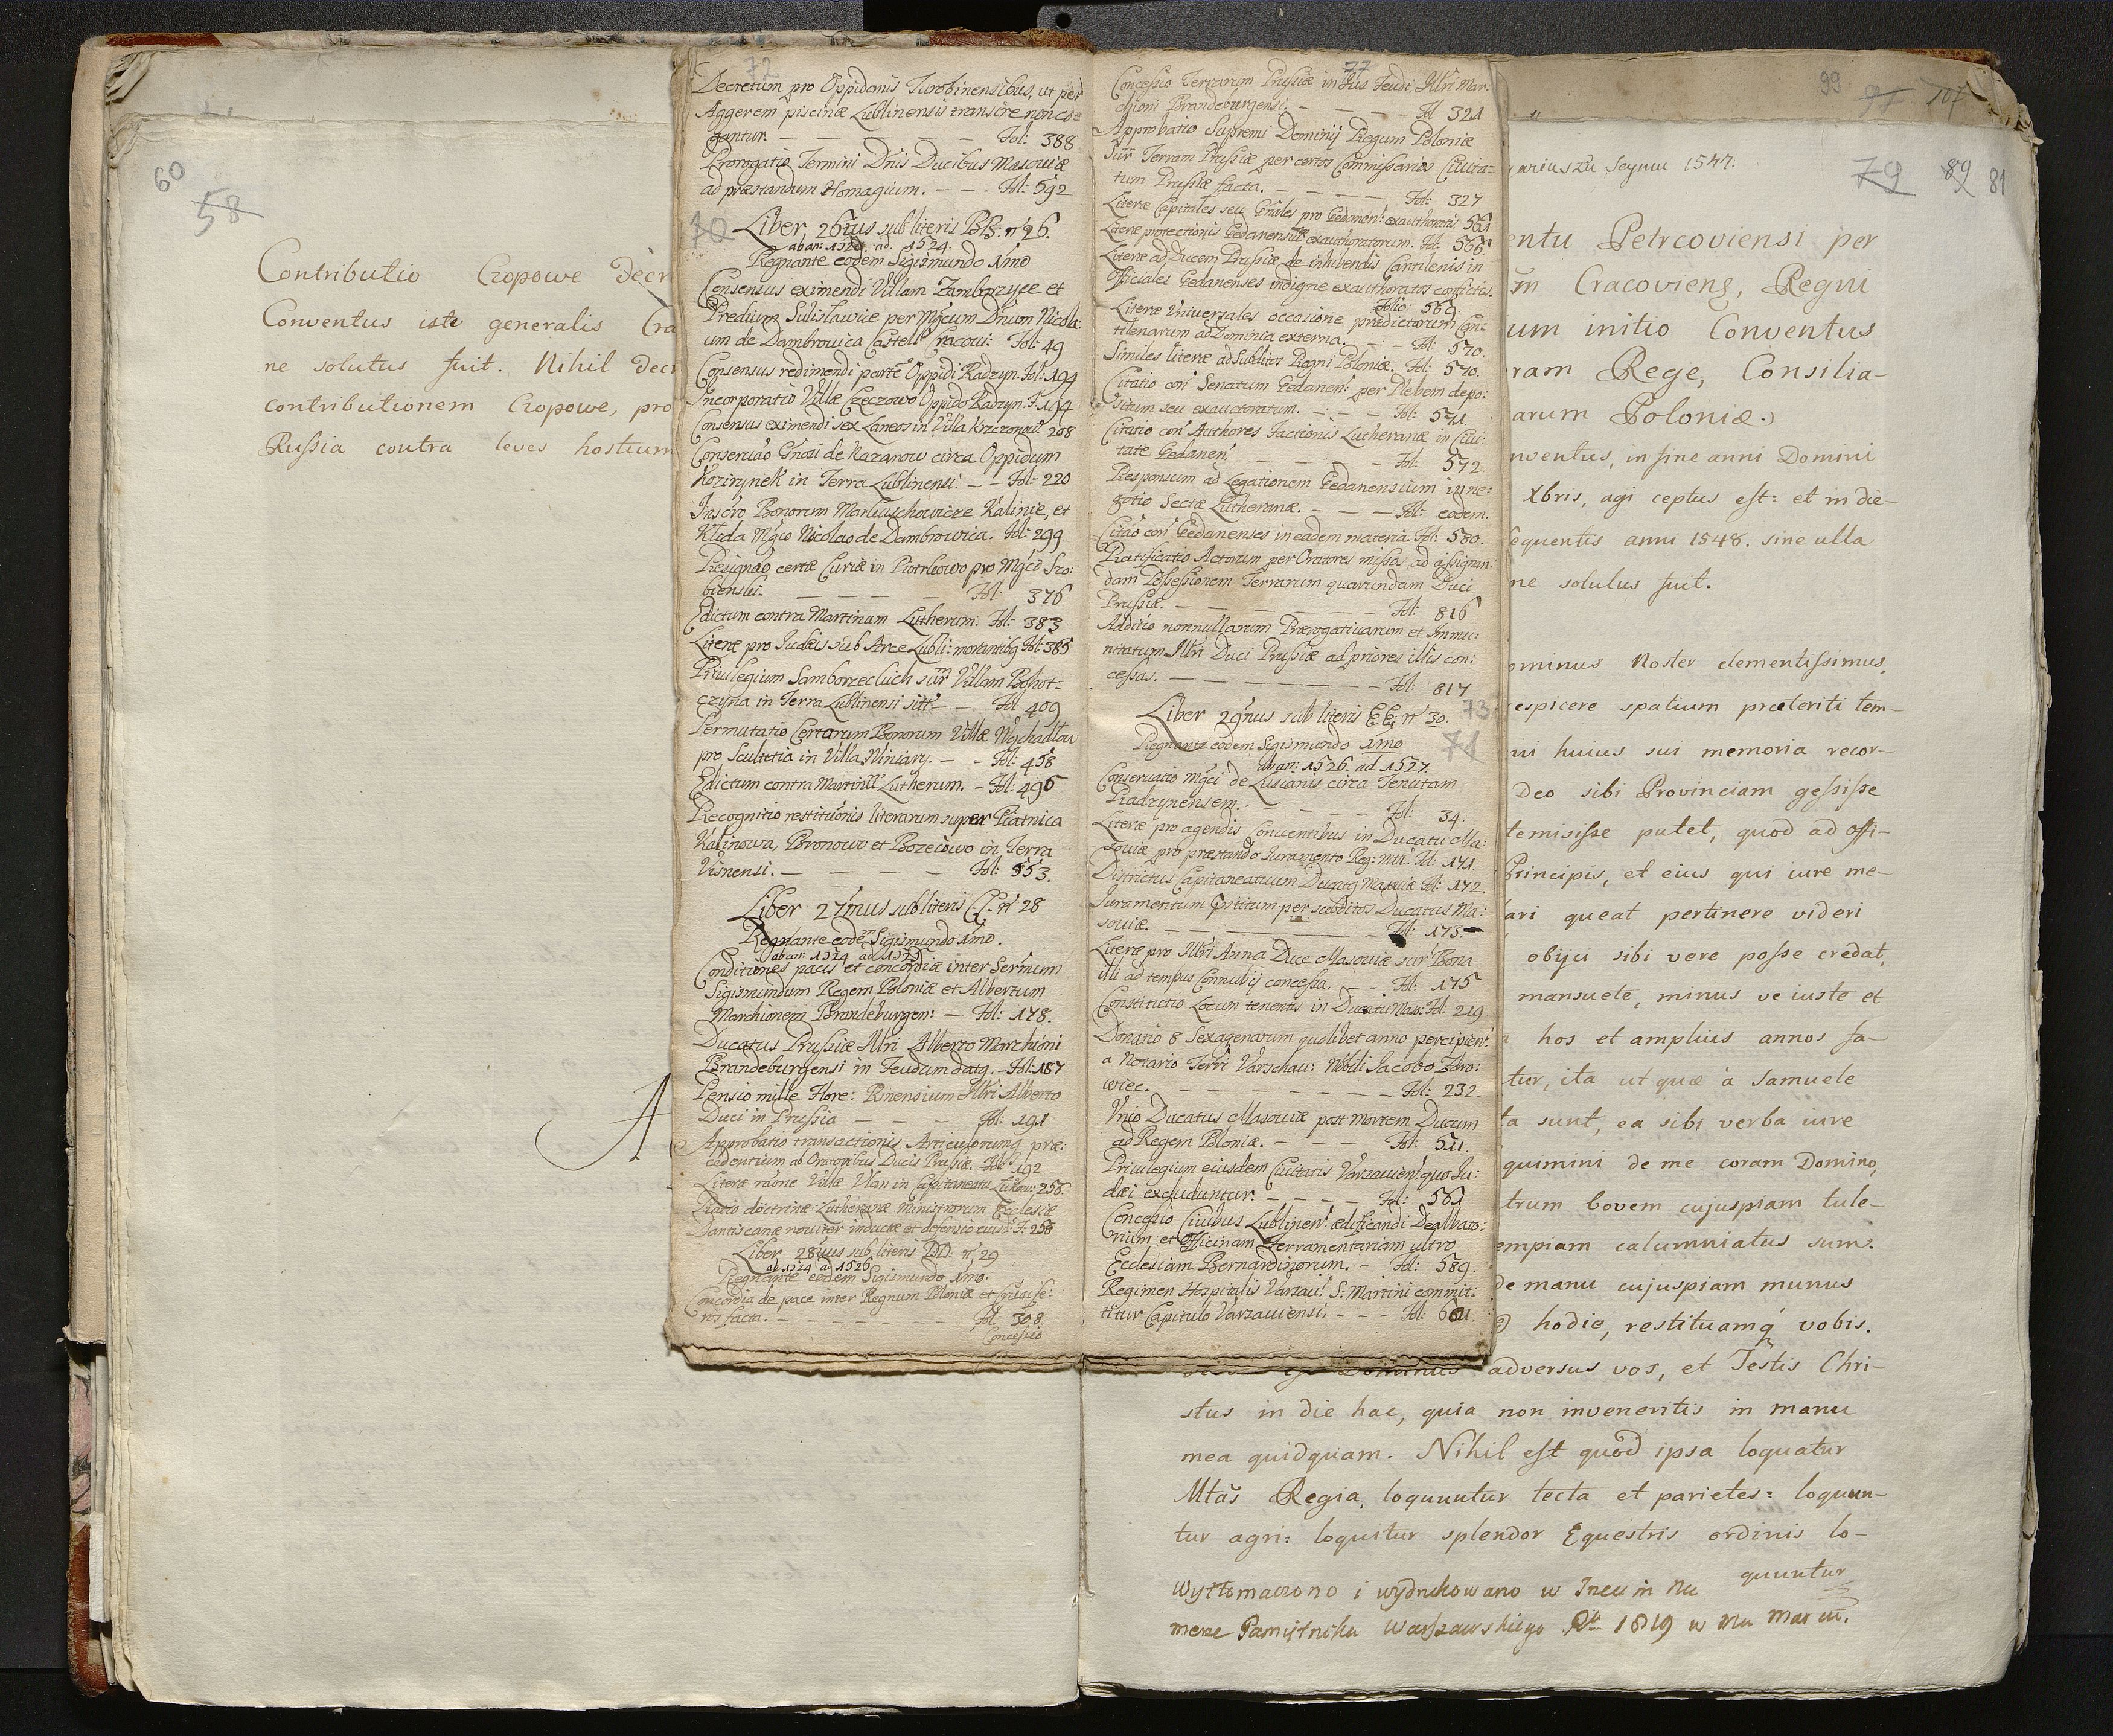 60
58
Contributio Czopowe decr
Conventus iste generalis Cra
ne solutus fuit. Nihil decr
contributionem Czopowe, pro
Rußia contra leves hostium
A
72
Decretum pro Oppidanis Turobinensibus, ut per
Aggerem piscinæ Lublinensis transire non co=
gantur. — — — — — Fol: 388
Prorogatio Termini Dnis Ducibus Masouiæ
ad præstandum Homagium. — — — Fol: 592
70
Liber 26tus sub literis BB: nº 26.
ab an: 1522. ad. 1524.
Regnante eodem Sigismundo 1mo
Consensus eximendi Villam Zamborzyce et
Predium Sulisławice per Mgcum Dnum Nicola:
um de Dambrowica Castell: Cracoui: Fol: 49
Consensus redimendi parte Oppidi Radzyn. Fol: 194
Incorporatio Villæ Czeczowo Oppido Radzyn. F. 194
Consensus eximendi sex Laneos in Villa 208
Conseruao Gnosi de Nazanow circa Oppidum
Kozirynek in Terra Lublinensi. — — Fol: 220
Inscro Bonorum Markuschowicze Kalinie, et
Kłoda Mgco Nicolao de Dambrowica. Fol: 299
Resignao certæ Curiæ in Piotrkowo pro Mgco Szo:
bienski. — — — — Fol: 376
Edictum contra Martinum Lutherum. Fol: 383
Literæ pro Judæis sub Arce Lubli: morantibg Fol: 385
Priuilegium Samborzecluch sur Villam
czyna in Terra Lublinensi sitt: — Fol 409
Permutatio Certarum Bonorum Villæ Woychadlow
pro Scultetia in Villa Winiary. — — Fol: 458
Edictum contra Martinu Lutherum. — Fol: 495
Recognitio restitutionis literarum super Piatnica
Kalinowa, Bronowo et Bozeiowo in Terra
Visnensi. — — — — — Fol: 553.
Liber 27mus sub literis CC. nº 28
Regnante eodem Sigismundo 1mo.
ab an: 1524 ad 1525
Conditiones pacis et concordiæ inter Sermum
Sigismundum Regem Poloniæ et Albertum
Marchionem Brandeburgen: — Fol: 178.
Ducatus Prußiæ Illri Alberto Marchioni
Brandeburgensi in Feudum datg. — Fol: 187
Pensio mille Flore: Rinensium Illri Alberto
Duci in Prußia — — — — Fol: 191
Approbatio transactionis Articulorumq præ:
cedentium ab Oratoribus Ducis Prußiæ. Fol: 192
Literæ raone Villæ Vlan in Capitaneatu Lukow: 256
Ratio doctrinæ Lutheranæ Ministrorum Ecclesiæ
Dantiscanæ nouiter inductæ et defensio eius: F: 258
Liber 28uus sub literis DD: nº 29
ab 1524 ad 1526
Regnante eodem Sigismundo 1mo.
Concordia de pace inter Regnum Poloniæ et Crucife:
ros facta. — — — — — Fol: 308.
Concessio
77
Concessio Terrarum Prußiæ in Jus Feudi, Illri Mar-
chioni Brandeburgensi. — — — Fol 321
Approbatio Supremi Dominij Regum Poloniæ
sur Terram Prußiæ per certos Commissarios Ciuita=
tum Prußiæ facta. — — — — Fol: 327
Literæ Capitales seu Gnales pro Gedanen: exauthoratis. 561
Literæ protectionis Gedanensium exauthoratorum. Fol: 565
Literæ ad Ducem Prußiæ de inhibendis Cantilenis in
Officiales Gedanenses indigne exauthoratos confectis.
Folio: 569.
Literæ Vniuersales occasione prædictarum Can:
tilenarum ad Dominia externa. — — Fol: 570.
Similes literæ ad Subditos Regni Poloniæ. Fol: 570.
Citatio con Senatum Gedanen: per Plebem depo:
situm seu exauctoratum. — — — Fol: 571
Citatio con Authores Factionis Lutheranæ in Ciui:
tate Gedanen: — — — — Fol: 572.
Responsum ad Legationem Gedanensium in ne:
gotio Sectæ Lutheranæ. — — — Fol: eodem.
Citao con Gedanenses in eadem materia Fol: 580.
Ratificatio Actorum per Oratores missos ad assignan:
dam Possessionem Terrarum quarundam Duci
Prußiæ. — — — — — Fol: 816
Additio nonnullarum Prærogatiuarum et Immu:
nitatum Illri Duci Prußiæ ad priores illis con:
cessas. — — — — — Fol: 817
Liber 29nus sub literis EE: nº 30. 73
Regnante eodem Sigismundo 1mo 71
ab an: 1526. ad 1527.
Conseruatio Mgci de Lusianis circa Tenutam
Radzynensem. — — — Fol: 34.
Literæ pro agendis Conuentibus in Ducatu Ma:
souiæ pro præstando Iuramento Reg: Mti. Fol: 171.
Districtus Capitaneatuum Ducatg Masouiæ Fol: 172.
Iuramentum præstitum per subditos Ducatus Ma:
souiæ. — — — — — Fol: 173.
Literæ pro Illri Anna Duce Masouiæ sur Bona
illi ad tempus Connubij concessa. — Fol: 175
Constitutio Locum tenentis in Ducatu Maso: Fol: 219
Donatio 8 Sexagenarum quolibet anno percipien:
a Notario Terri Varschau: Nobili Jacobo Zdro:
wiec. — — — — — Fol: 232
Vnio Ducatus Masouiæ post mortem Ducum
ad Regem Poloniæ. — — — Fol: 511.
Priuilegium eiusdem Ciuitatis Varzauien: quo Iu:
dæi excluduntur. — — — — Fol: 561
Concessio Ciuibus Lublinen: ædificandi Dealbato:
rium et Officinam Ferramentariam vltro
Ecclesiam Bernardinorum. — Fol: 589.
Regimen Hospitalis Varzau: S: Martini commit:
titur Capitulo Varzauiensi. — — — Fol: 601.
99 97 107
ariusza Seymu 1547.
79 89 81
entu Petrcoviensi per
m Cracovieng, Regni
um initio Conventus
ram Rege, Consilia-
arum Poloniæ.)
nventus, in fine anni Domini
Xbris, agi ceptus est: et in die-
equentis anni 1548. sine ulla
ne solutus fuit.
ominus Noster clementißimus,
espicere spatium præteriti tem-
ni huius sui memoria recor-
Deo sibi Provinciam geßiße
temisiße putet, quod ad offi-
Principis, et eius qui iure me-
ari queat pertinere videri
obijci sibi vere poße credat,
mansuete, minus ve iuste et
hos et amplius annos fa-
tur, ita ut quæ a Samuele
ta sunt, ea sibi verba iure
quimini de me coram Domino,
trum bovem cujuspiam tule-
empiam calumniatus sum.
de manu cujuspiam munus
hodie, restituamq vobis.
Dominus adversus vos, et Testis Chri-
stus in die hac, quia non inveneritis in manu
mea quidquam. Nihil est quod ipsa loquatur
Mtas Regia, loquuntur tecta et parietes: loquun-
tur agri: loquitur splendor Equestris ordinis lo-
quuntur
Wytłomaczono i wydrukowano w Trzecim Nu
merze Pamiętnika Warszawskiego Rku 1819 w Mcu Marcu.